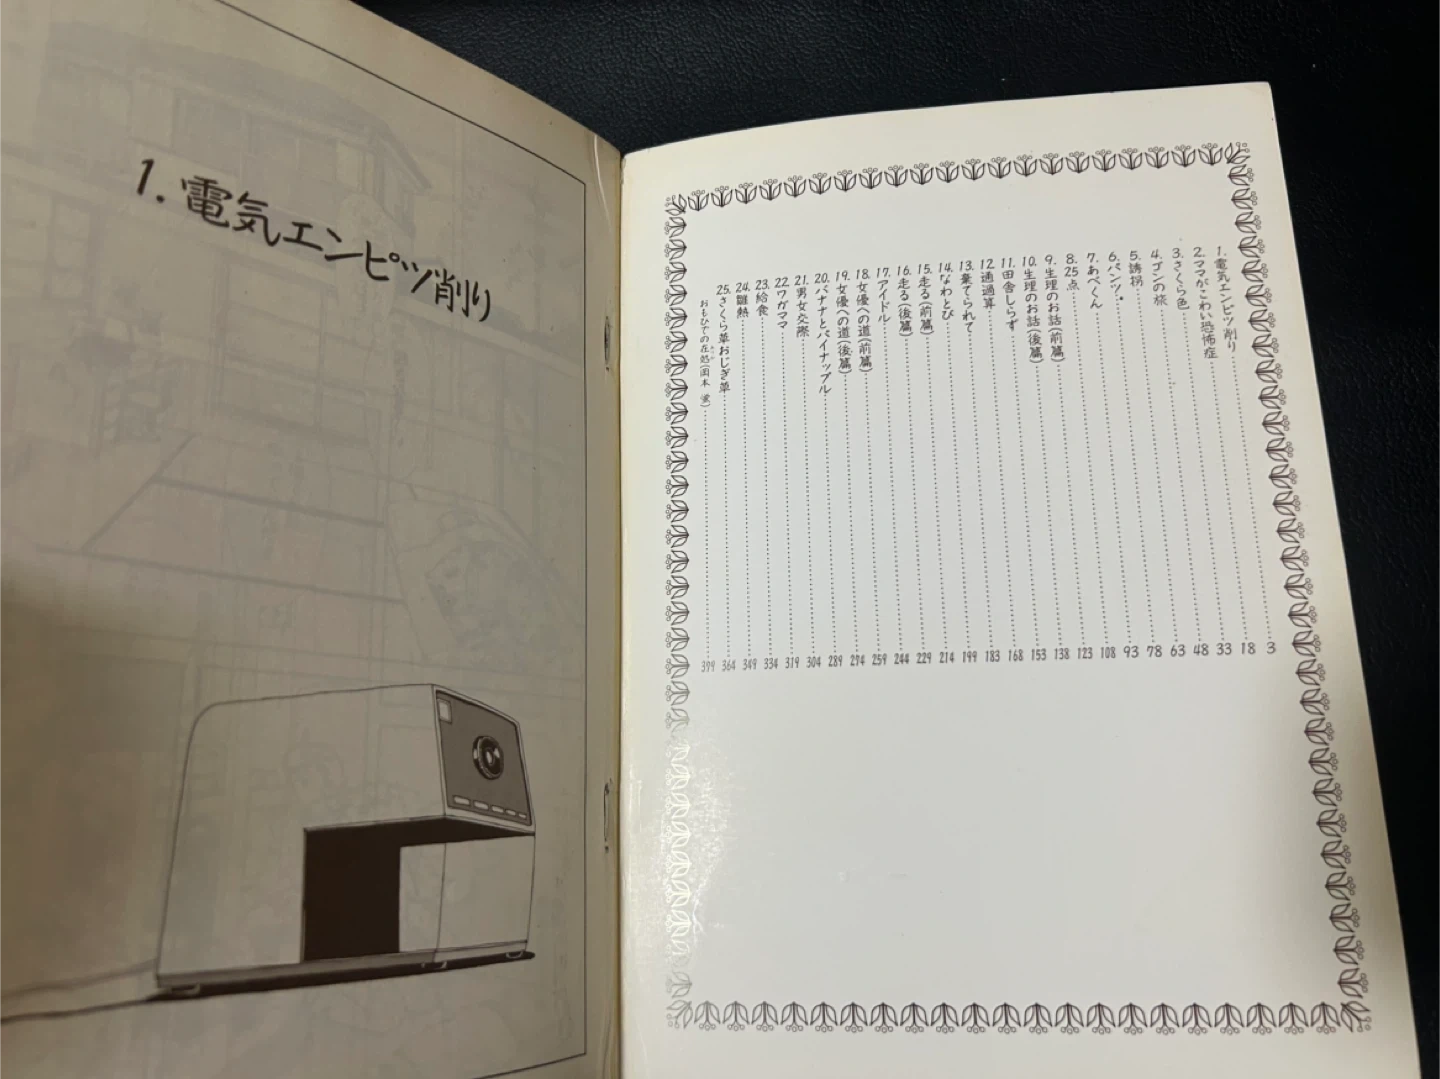 1. 電気エンピツ削り
1. 電気エンピツ削り 3
2. ママがこわい恐怖症 18
3. さくら色 33
4. ゴンの旅 48
5. 誘拐 63
6. パンツ 78
7. あべくん 93
8. 25点 108
9. 生理のお話(前篇) 123
10. 生理のお話(後篇) 138
11. 田舎しらず 153
12. 通過算 168
13. 棄てられて 183
14. なわとび 199
15. 走る(前篇) 214
16. 走る(後篇) 229
17. アイドル 244
18. 女優への道(前篇) 259
19. 女優への道(後篇) 274
20. バナナとパイナップル 289
21. 男女交際 304
22. ワガママ 319
23. 給食 334
24. 雛熱 349
25. さくら草おじぎ草 364
おもひでの在処(岡本 螢) 394